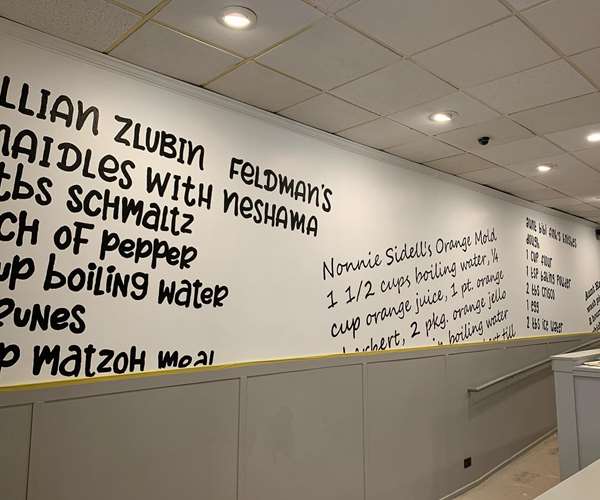 LLIAN ZLUBIN FELDMAN'S
NAIDLES WITH NESHAMA
tbs SCHMALTZ
CH OF PEPPER
UP boiling WATER
RUNES
P MATZOH MEAL
Nonnie Sidell's Orange Mold
1 1/2 cups boiling water, ¼
cup orange juice, 1 pt. orange
sherbert, 2 pkg. orange jello
in boiling water
till
KNISHES
dough
1 cup flour
1 tsp baking powder
2 tbs crisco
1 egg
2 tbs ice water